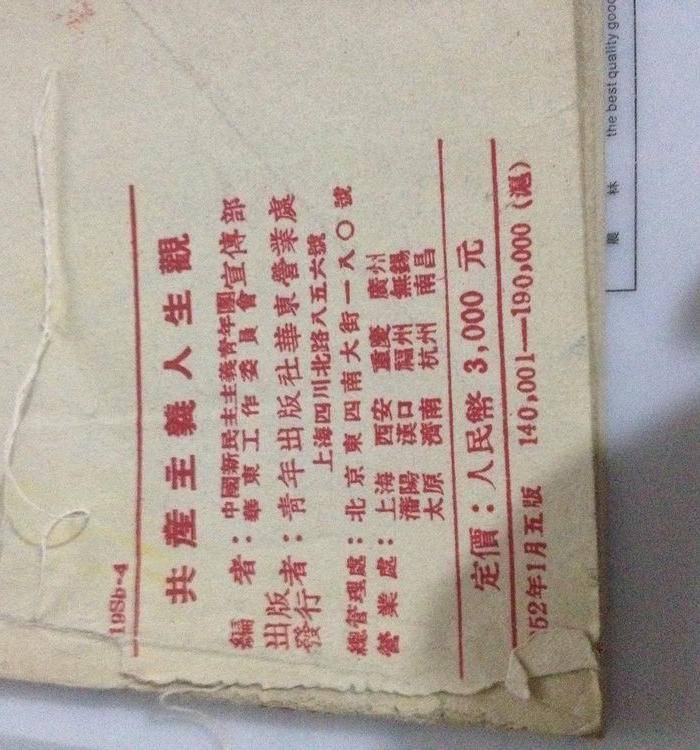 198b-4
共產主義人生觀
編者：中國新民主主義青年團華東工作委員會宣傳部
出版發行者：青年出版社華東營業處
上海四川北路八五六號
總管理處：北京東四南大街一八〇號
營業處：上海 西安 重慶 廣州
瀋陽 漢口 福州 無錫
太原 濟南 杭州 南昌
定價：人民幣 3,000 元
52年1月五版 140,001—190,000（滬）
the best quality good
農 林